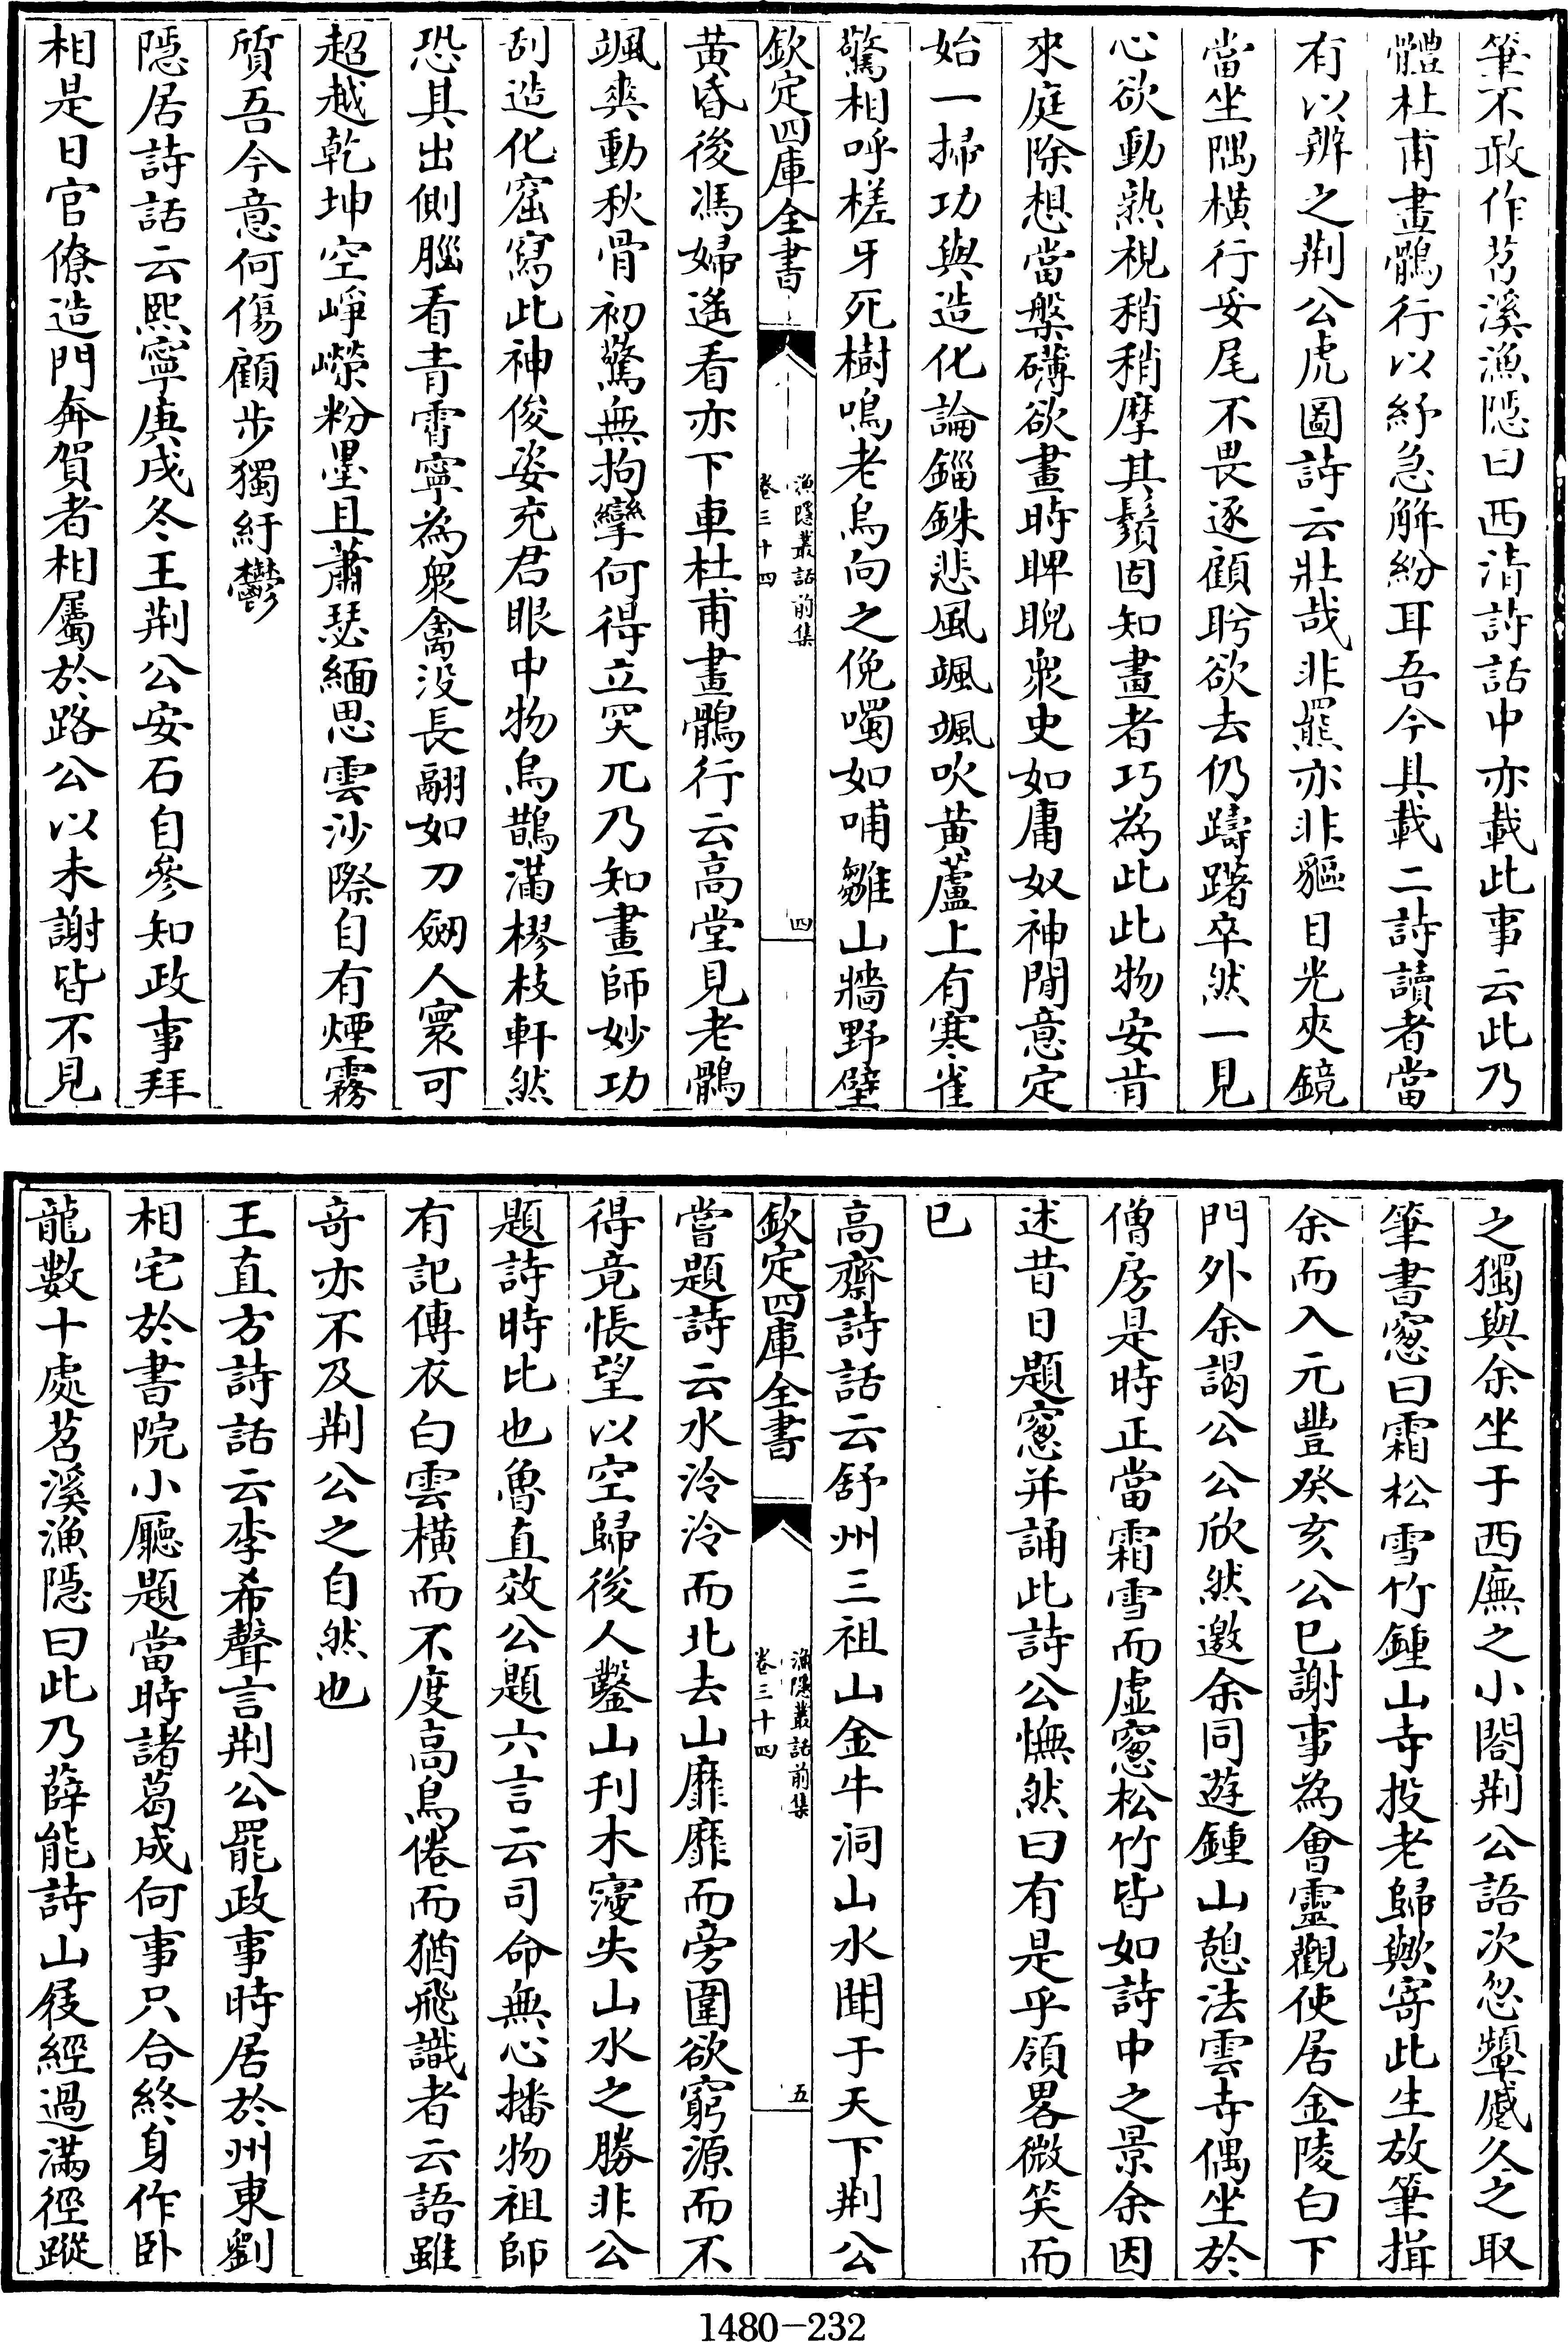 筆不敢作苕溪漁隱曰西清詩話中亦載此事云此乃
體杜甫畫鶻行以紓急解紛耳吾今具載二詩讀者當
有以辨之荆公虎圖詩云壯哉非羆亦非貙目光夾鏡
當坐隅橫行妥尾不畏逐顧盻欲去仍躊躇卒然一見
心欲動熟視稍稍摩其鬚固知畫者巧為此此物安肯
來庭除想當槃礴欲畫時睥睨衆史如庸奴神閒意定
始一掃功與造化論錙銖悲風颯颯吹黃蘆上有寒雀
驚相呼槎牙死樹鳴老烏向之俛噣如哺雛山牆野壁
欽定四庫全書
漁隱叢話前集
卷三十四
四
黃昏後馮婦遙看亦下車杜甫畫鶻行云高堂見老鶻
颯爽動秋骨初驚無拘攣何得立突兀乃知畫師妙功
刮造化窟寫此神俊姿充君眼中物烏鵲滿樛枝軒然
恐具出側腦看青霄寧為衆禽没長翮如刀劒人寰可
超越乾坤空崢嶸粉墨且蕭瑟緬思雲沙際自有煙霧
質吾今意何傷顧步獨紆鬱
隱居詩話云熙寧庚戌冬王荆公安石自參知政事拜
相是日官僚造門奔賀者相屬於路公以未謝皆不見
之獨與余坐于西廡之小閤荆公語次忽顰蹙久之取
筆書窻曰霜松雪竹鍾山寺投老歸歟寄此生放筆揖
余而入元豐癸亥公已謝事為會靈觀使居金陵白下
門外余謁公公欣然邀余同遊鍾山憩法雲寺偶坐於
僧房是時正當霜雪而虛窻松竹皆如詩中之景余因
述昔日題窻并誦此詩公憮然曰有是乎領畧微笑而
已
高齋詩話云舒州三祖山金牛洞山水聞于天下荆公
欽定四庫全書
漁隱叢話前集
卷三十四
五
嘗題詩云水泠泠而北去山靡靡而旁圍欲窮源而不
得竟悵望以空歸後人鑿山刊木寖失山水之勝非公
題詩時比也魯直效公題六言云司命無心播物祖師
有記傳衣白雲橫而不度高鳥倦而猶飛識者云語雖
奇亦不及荆公之自然也
王直方詩話云李希聲言荆公罷政事時居於州東劉
相宅於書院小廳題當時諸葛成何事只合終身作卧
龍數十處苕溪漁隱曰此乃薛能詩山屐經過滿徑蹤
1480-232